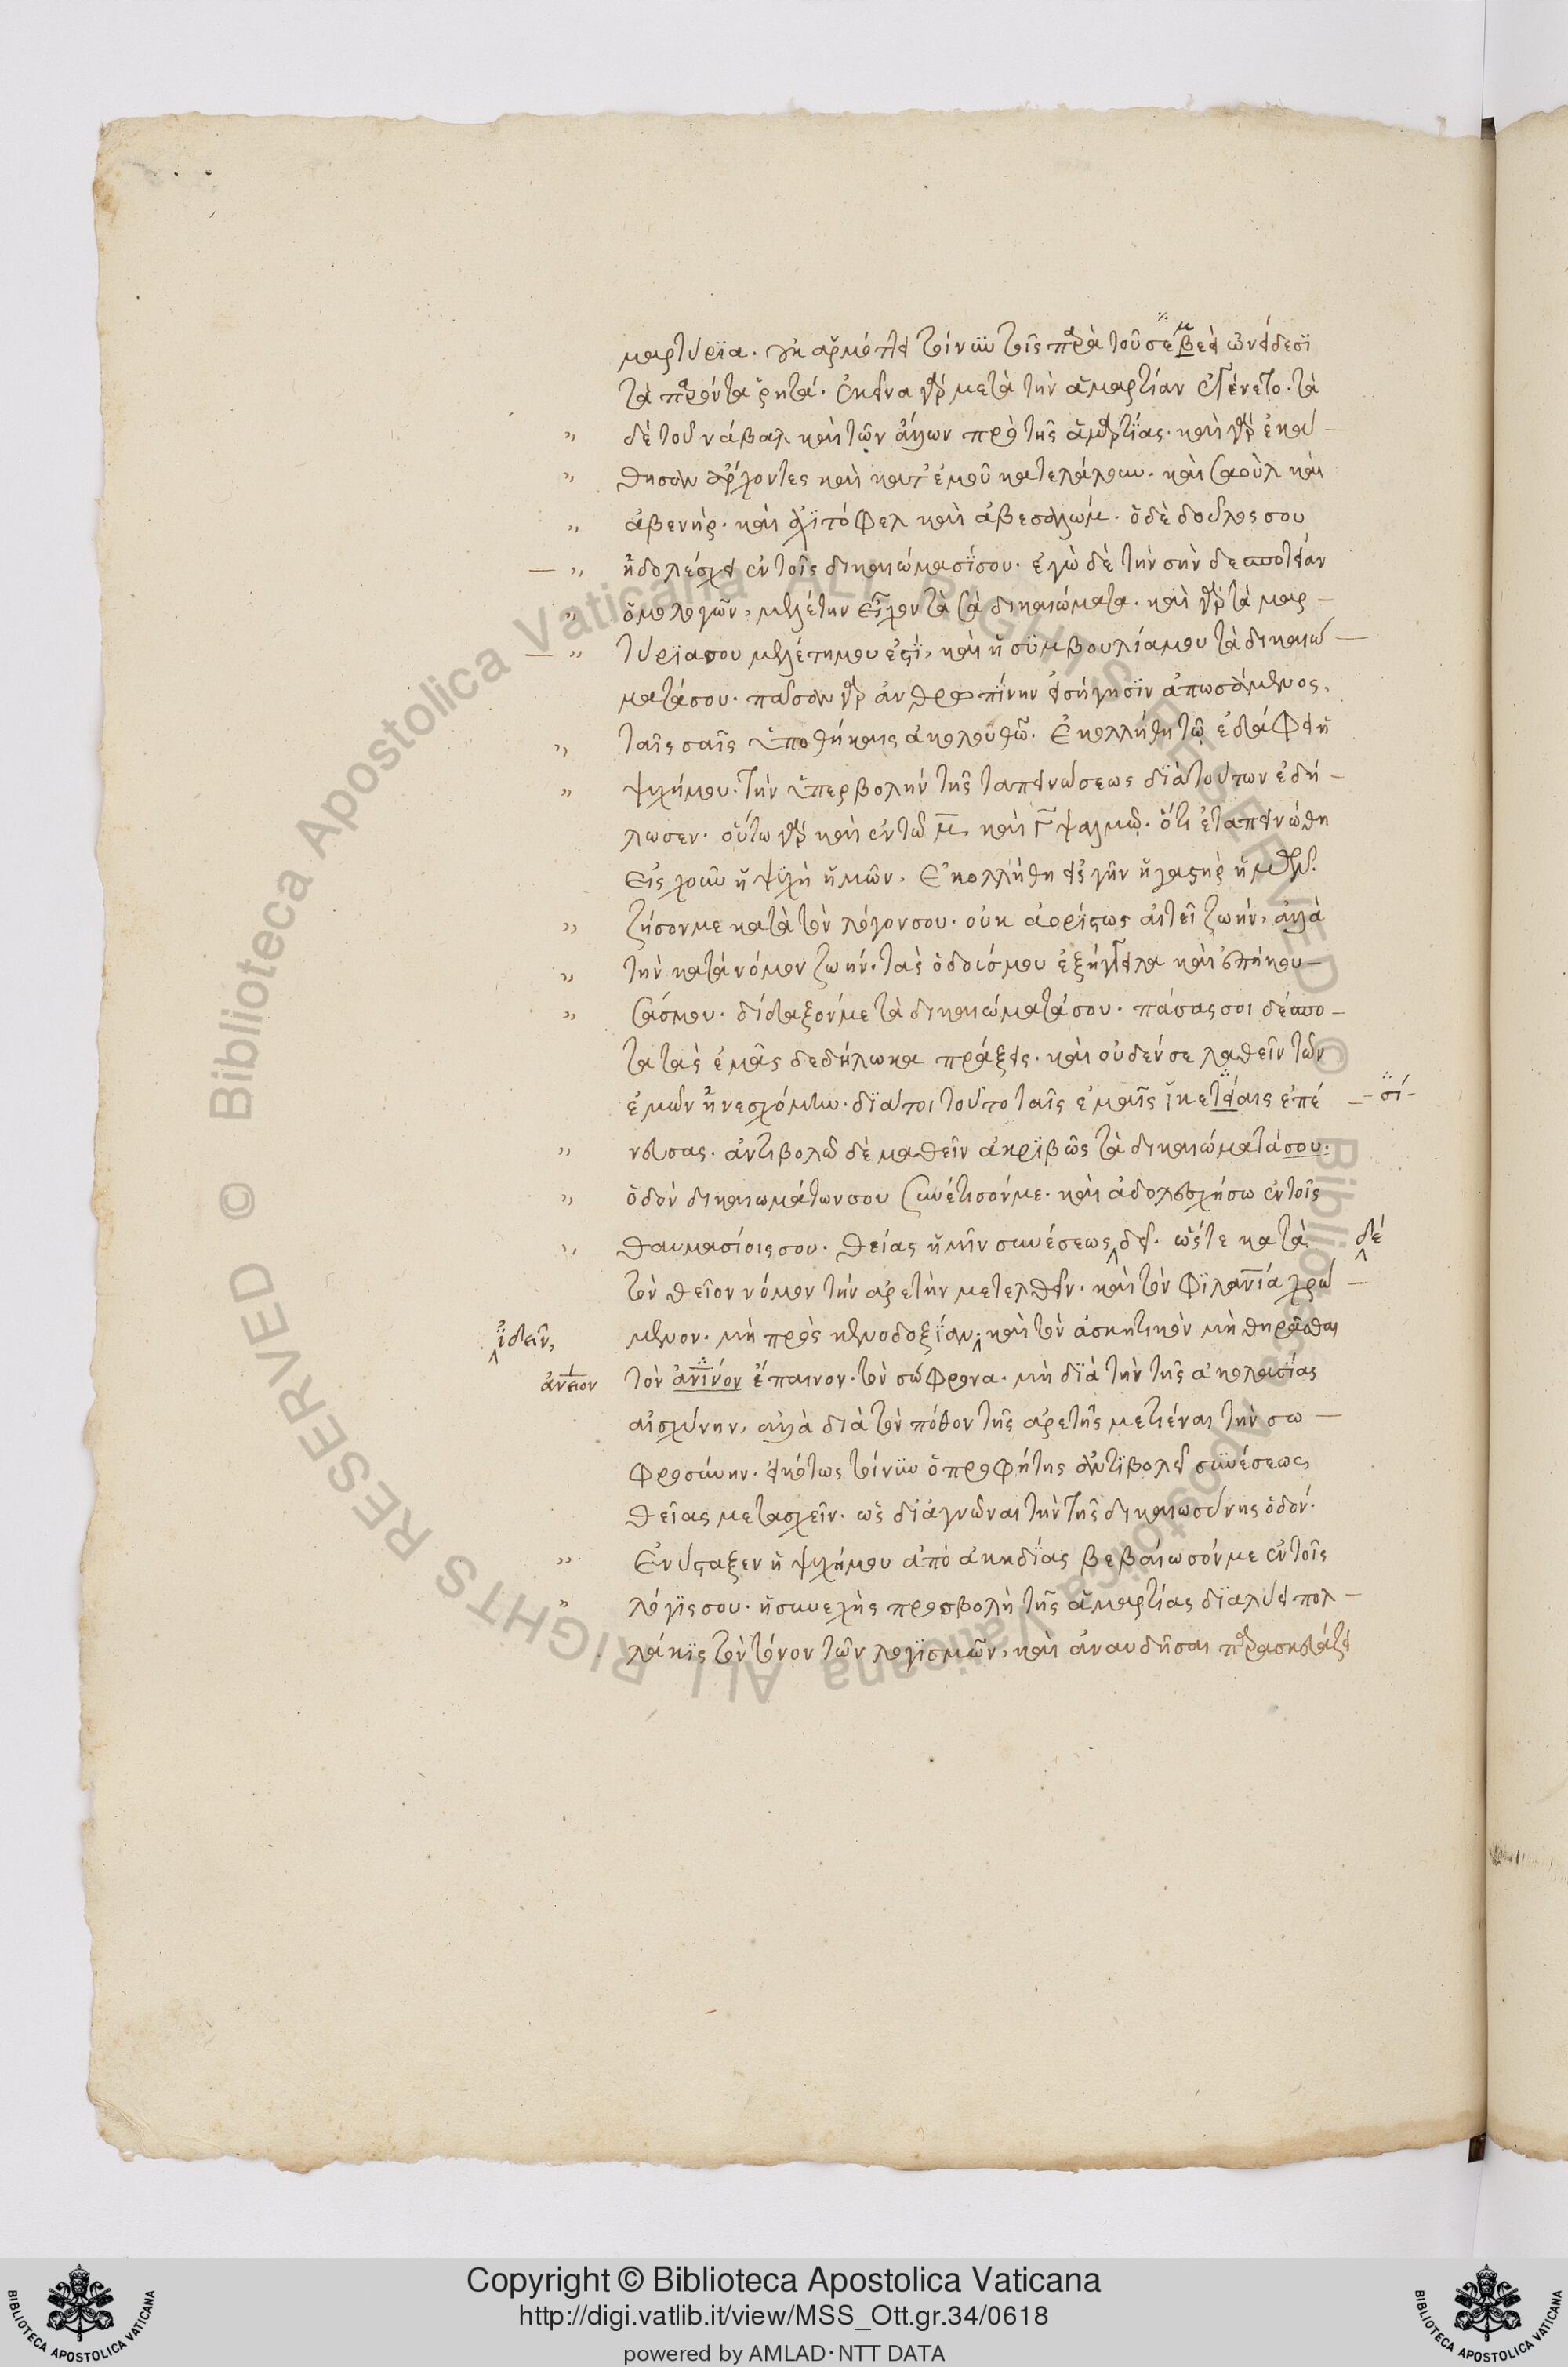 μαρτύρια. οὐχ ἁρμόττει τοίνυν τοῖς παρὰ τοῦ σεβεεὶ ὀνείδεσι
τὰ παρόντα ῥητά. ἐκεῖνα γὰρ μετὰ τὴν ἁμαρτίαν ἐγένετο. τὰ
δὲ τοῦ νάβαλ καὶ τῶν ἄλλων πρὸ τῆς ἁμαρτίας. καὶ γὰρ ἐκά-
θησαν ἄρχοντες καὶ κατ' ἐμοῦ κατελάλουν. καὶ σαοὺλ καὶ
ἀβενήρ. καὶ ἀχιτόφελ καὶ ἀβεσαλώμ. ὁ δὲ δοῦλός σου
ἠδολέσχει ἐν τοῖς δικαιώμασί σου. ἐγὼ δὲ τὴν σὴν δεσποτείαν
ὁμολογῶν, μελέτην εἶχον τὰ σὰ δικαιώματα. καὶ γὰρ τὰ μαρ-
τύριά σου μελέτη μου ἐστί, καὶ ἡ συμβουλία μου τὰ δικαιώ-
ματά σου. πᾶσαν γὰρ ἀνθρωπίνην εἰσήγησιν ἀπωσάμενος,
ταῖς σαῖς ὑποθήκαις ἀκολουθῶ. Ἐκολλήθη τῷ ἐδάφει ἡ
ψυχή μου. τὴν ὑπερβολὴν τῆς ταπεινώσεως διὰ τούτων ἐδή-
λωσεν. οὕτω γὰρ καὶ ἐν τῷ μ̅ καὶ γ̅ ψαλμῷ. ὅτι ἐταπεινώθη
εἰς χοῦν ἡ ψυχὴ ἡμῶν. Ἐκολλήθη εἰς γῆν ἡ γαστὴρ ἡμῶν.
ζῆσόν με κατὰ τὸν λόγον σου. οὐκ ἀορίστως αἰτεῖ ζωήν, ἀλλὰ
τὴν κατὰ νόμον ζωήν. τὰς ὁδούς μου ἐξήγγειλα καὶ ἐπήκου-
σάς μου. δίδαξόν με τὰ δικαιώματά σου. πάσας σοι δέσπο-
τα τὰς ἐμὰς δεδήλωκα πράξεις. καὶ οὐδέν σε λαθεῖν τῶν
ἐμῶν ἠνεσχόμην. διά τοι τοῦτο ταῖς ἐμαῖς ἱκετείαις ἐπέ- -σί-
νευσας. ἀντιβολῶ δὲ μαθεῖν ἀκριβῶς τὰ δικαιώματά σου.
ὁδὸν δικαιωμάτων σου συνέτισόν με. καὶ ἀδολεσχήσω ἐν τοῖς
θαυμασίοις σου. θείας ἡμῖν συνέσεως δεῖ. ὥστε κατὰ δέ
τὸν θεῖον νόμον τὴν ἀρετὴν μετελθεῖν. καὶ τὸν φιλανίᾳ χρώ-
ἰδεῖν, μενον. μὴ πρὸς κενοδοξίαν, καὶ τὸν ἀσκητικὸν μὴ θηρᾶσθαι
ἀνειον τὸν ἀνινόν ἔπαινον. τὸν σώφρονα. μὴ διὰ τὴν τῆς ἀκολασίας
αἰσχύνην, ἀλλὰ διὰ τὸν πόθον τῆς ἀρετῆς μετιέναι τὴν σω-
φροσύνην. εἰκότως τοίνυν ὁ προφήτης ἀντιβολεῖ συνέσεως
θείας μετασχεῖν. ὡς διάγνῶναι τὴν τῆς δικαιωσύνης ὁδόν.
Ἐνύσταξεν ἡ ψυχή μου ἀπὸ ἀκηδίας βεβαίωσόν με ἐν τοῖς
λόγοις σου. ἡ συνεχὴς προσβολὴ τῆς ἁμαρτίας διαλύει πολ-
λάκις τὸν τόνον τῶν λογισμῶν, καὶ ἀναυδῆσαι παρασκευάζει
Copyright © Biblioteca Apostolica Vaticana
http://digi.vatlib.it/view/MSS_Ott.gr.34/0618
powered by AMLAD·NTT DATA